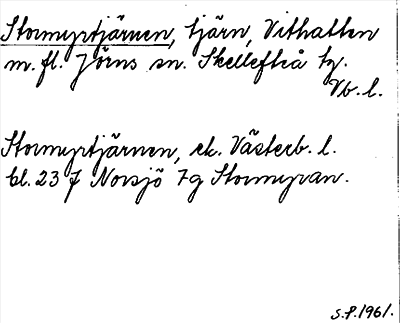 Stormyrtjärnen, tjärn, Vithatten
m. fl. Jörns sn. Skellefteå tg.
Vb. l.
Stormyrtjärnen, ek. Västerb. l.
bl. 23 J Norsjö 7g Stormyran.
S.P. 1961.